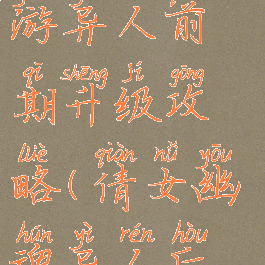 游异人前
qī shēng jí gōng
期升级攻
lüè qiàn nǚ yōu
略(倩女幽
hún yì rén hòu
魂异人后